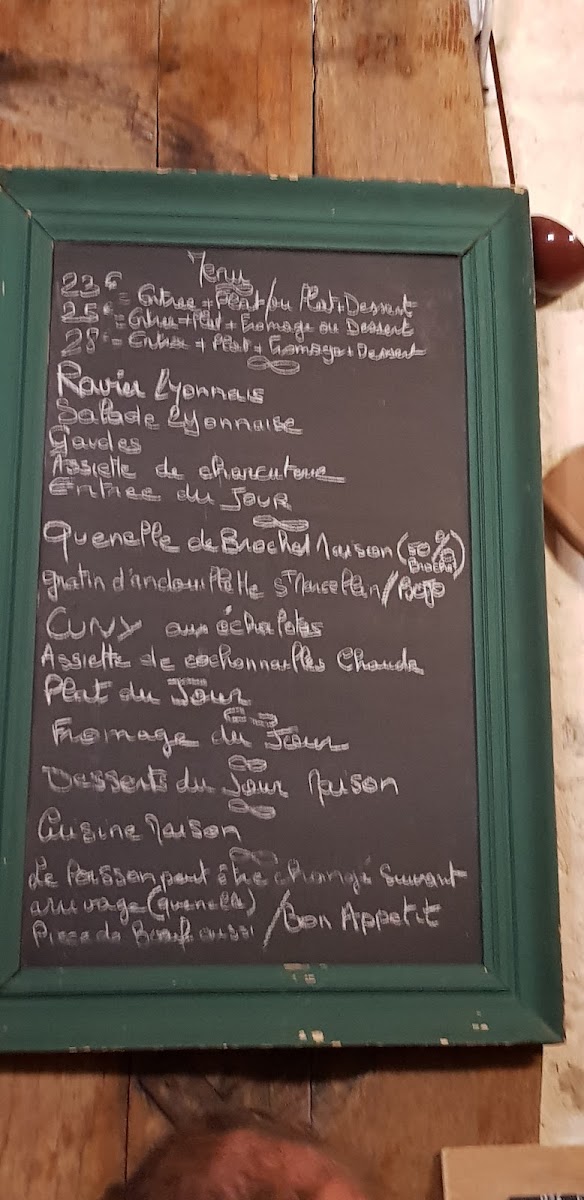 Menus
23€ = Entree + Plat / ou Plat + Dessert
25€ = Entree + Plat + Fromage ou Dessert
28€ = Entree + Plat + Fromage + Dessert
Ravier Lyonnais
Salade Lyonnaise
Gaudes
Assiette de charcuterie
Entree du Jour
Quenelle de Brochet Maison (50%
Brochet)
gratin d'andouillette St Marcellin /
CUNY aux échalotes
Assiette de cochonnailles Chaude
Plat du Jour
Fromage du Jour
Desserts du Jour Maison
Cuisine Maison
Le Poisson peut être changé suivant
arrivage (quenelle) / Bon Appetit
Piece de Boeuf aussi